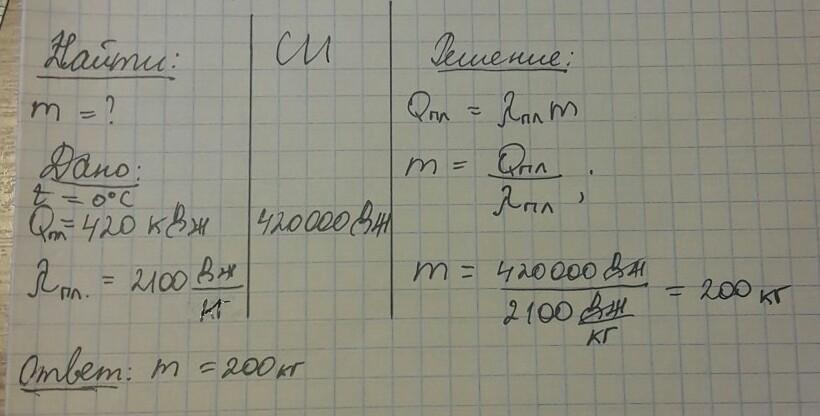 Найти:
m = ?
Дано:
t = 0°C
Qпл = 420 кДж
λпл. = 2100 Дж/кг
СИ
420000 Дж
Решение:
Qпл = λпл m
m = Qпл / λпл ;
m = 420000 Дж / 2100 Дж/кг = 200 кг
Ответ: m = 200 кг